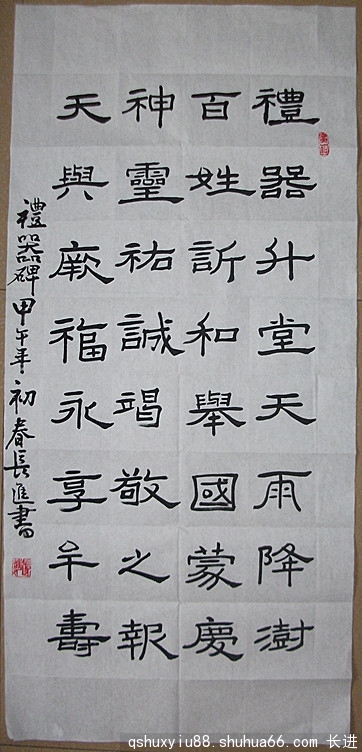 禮器升堂天雨降澍
百姓訢和舉國蒙慶
神靈祐誠竭敬之報
天與厥福永享牟壽
禮器碑甲午年初春長進書
qshuxyiu88.shuhua66.com 长进